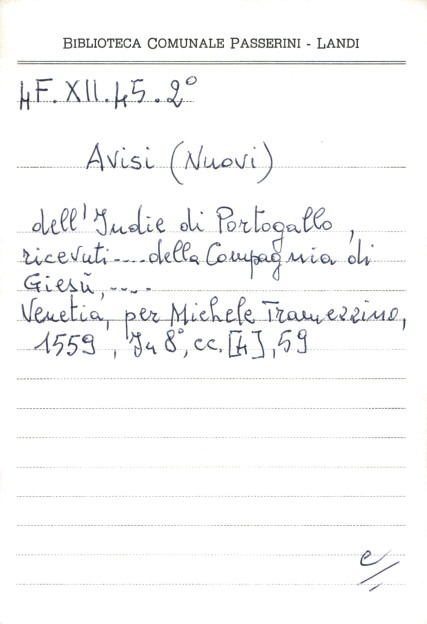 BIBLIOTECA COMUNALE PASSERINI - LANDI
4F.XII.45.2°
Avisi (Nuovi)
dell'Indie di Portogallo,
ricevuti....della Compagnia di
Giesù,....
Venetia, per Michele Tramezzino,
1559, In 8°, cc.[4],59
e